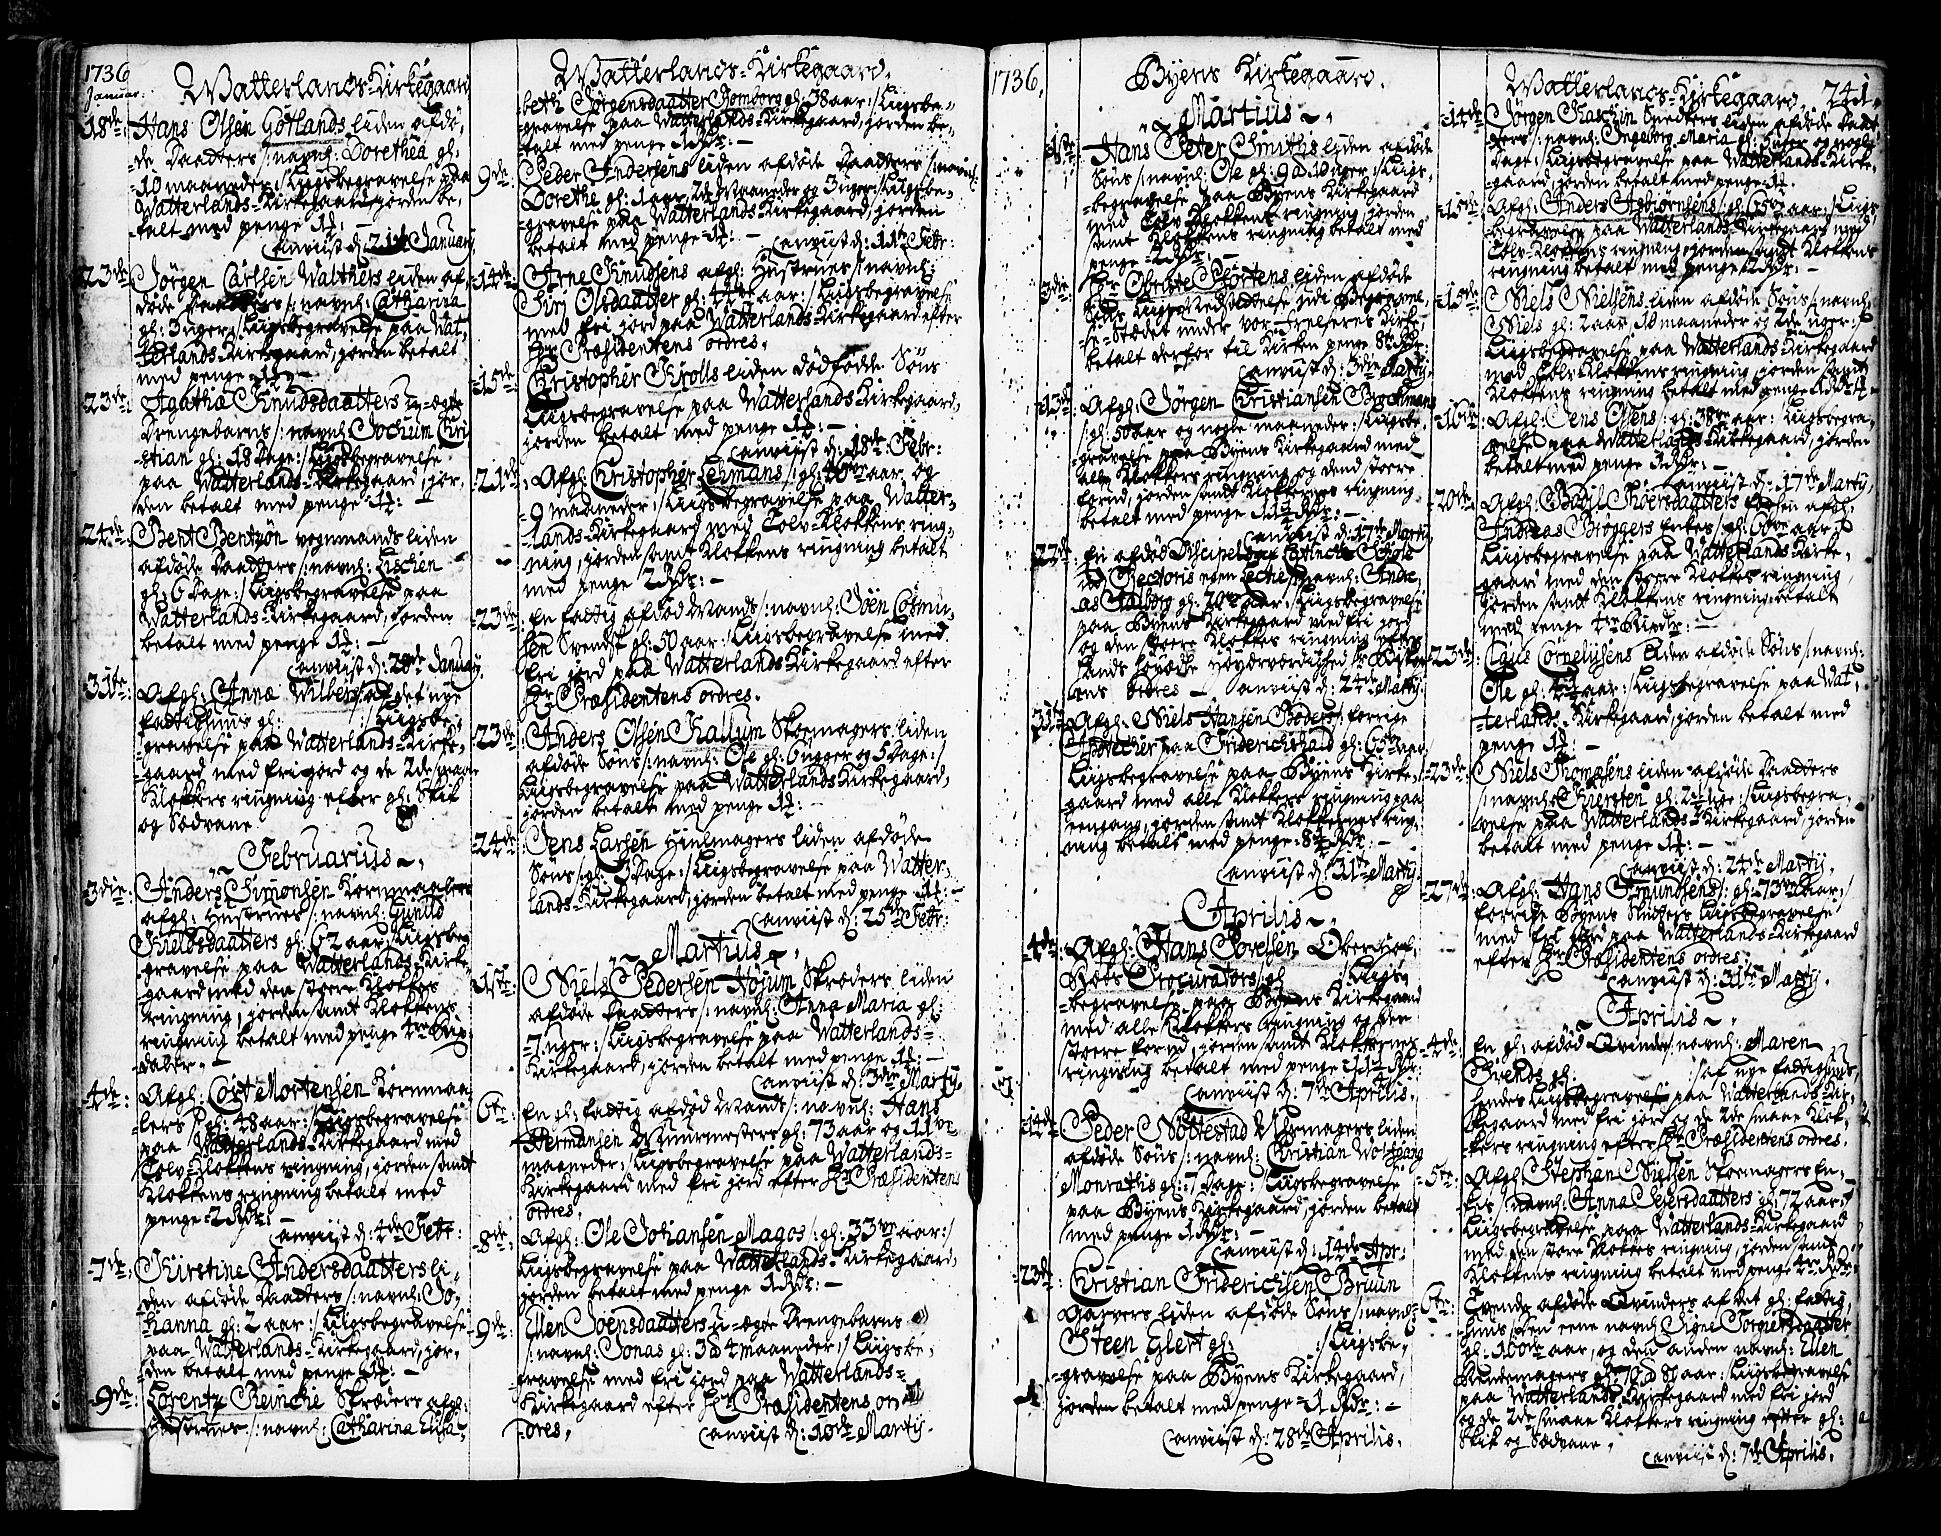 1736
Januar:
Watterlands-Kirkegaard
18de: Hans Olsen Götlands liden afdö-
de Daatters /:navnl: Dorethea gl:
10 maaneder:/ Liigsbegravelse paa
Watterlands-Kirkegaard, jorden be-
talt med penge
anviist d: 21de January
23de Jörgen Carlsen Walthers liden af-
döde Daatters /:navnl: Catharina
gl: 3 uger:/ Liigsbegravelse paa Wat-
terlands-Kirkegaard, jorden betalt
med penge
23de: Agatha Knudsdaatters u-ægte
Drengebarns /:navnl: Jochum Chri-
stian gl: 18 Dage:/ Liigsbegravelse
paa Watterlands-Kirkegaard, jor-
den betalt med penge
24de: Bent Bentzön vognmands liden
afdöde Daatters /:navnl: Lischen
gl: 6 Dage:/ Liigsbegravelse paa
Watterlands-Kirkegaard, jorden
betalt med penge
anviist d: 28de January
31te: Afgl: Anna Wilbers /:af det nye
fattighuus gl: :/ Liigsbe-
gravelse paa Watterlands-Kirke-
gaard med fri jord og de 2de smaae
Klokkers ringning efter gl: Skik
og Sædvane
Februarius
3die: Anders Simonsen Kornmaalers
afgl: Hustrues /:navnl: Gunild
Kieldsdaatters gl: 62 aar:/ Liigsbe-
gravelse paa Watterlands-Kirke-
gaard med den större Klokkes
ringning, jorden samt Klokkens
ringning betalt med penge
daler
4de: Afgl: Cort Mortensen Kornmaa-
lers /:gl: 48 aar:/ Liigsbegravelse
paa Watterlands-Kirkegaard med
Tolv-Klokkens ringning, jorden samt
Klokkens ringning betalt med
penge 2 Rdr:
anviist d: 4de Febr:
7de: Kirstine Andersdaatters li-
den afdöde Daatters /:navnl: Jo-
hanna gl: 2 aar:/ Liigsbegravelse
paa Watterlands-Kirkegaard, jor-
den betalt med penge
9de: Lorentz Reinche Skræders afgl:
Hustrues /:navnl: Catharina Elisa-
Watterlands-Kirkegaard.
beth Jörgensdaatter gl: 38 aar:/ Liigsbe-
gravelse paa Watterlands-Kirkegaard, jorden be-
talt med penge 1 Rdr:
9de: Peder Andersens liden afdöde Daatters /:navnl:
Dorethe gl: 1 aar, 2de Maaneder og 3 uger:/ Liigsbe-
gravelse paa Watterlands-Kirkegaard, jorden
betalt med penge
anviist d: 11te Febr:
14de: Arne Knudsens afgl: Hustrues /:navnl:
Siri Olsdaatter gl: aar:/ Liigsbegravelse
med fri jord paa Watterlands-Kirkegaard efter
Hr Præsidentens ordres.
15de: Christopher Krolls liden dödfödte Söns
Liigsbegravelse paa Watterlands-Kirkegaard,
jorden betalt med penge
anviist d: 18de: Febr:
21de: Afgl: Christopher Lehmans /:gl: aar, og
9 maaneder:/ Liigsbegravelse paa Watter-
lands-Kirkegaard med Tolv-Klokkens ring-
ning, jorden samt Klokkens ringning betalt
med penge 2 Rdr:
23de: En fattig afdöd Mands /:navnl: Joen Cosmu-
sen Svendst gl: 50 aar:/ Liigsbegravelse med
fri jord paa Watterlands-Kirkegaard efter
Hr Præsidentens ordres.
23de: Anders Olsen Kallum Skoemagers liden
afdöde Söns /:navnl: Ole gl: 6 uger og 5 Dage:/
Liigsbegravelse paa Watterlands-Kirkegaard,
jorden betalt med penge
24de: Jens Larsen Hiulmagers liden afdöde
Söns /:gl: 3 Dage:/ Liigsbegravelse paa Watter-
lands-Kirkegaard, jorden betalt med penge
anviist d: 25de Febr:
Martius
1ste: Niels Pedersen Höjum Skræders liden
afdöde Daatters /:navnl: Anna Maria gl:
7 uger:/ Liigsbegravelse paa Watterlands-
Kirkegaard, jorden betalt med penge
anviist d: 3die Marty.
6te: En gl: fattig afdöd Mands /:navnl: Hans
Hermansen Muurmesters gl: 73 aar og 11
maaneder:/ Liigsbegravelse paa Watterlands-
Kirkegaard med fri jord efter Hr Præsidentens
ordres.
8de: Afgl: Ole Johansen Magos /:gl: 33 aar:/
Liigsbegravelse paa Watterlands-Kirkegaard,
jorden betalt med penge 1 Rdr:
9de: Ellen Joensdaatters u-ægte Drengebarns
/:navnl: Jonas gl: 3 à 4 maaneder:/ Liigsbe-
gravelse med fri jord paa Watterlands-
Kirkegaard efter Hr Præsidentens or-
dres.
anviist d: 10de Marty.
1736.
Byens Kirkegaard.
Martius
1ste: Hans Peter Smiths liden afdöde
Söns /:navnl: Ole gl: 9 à 10 uger:/ Liigs-
begravelse paa Byens Kirkegaard
med Tolv-Klokkens ringning, jorden
samt Klokkens ringning betalt med
penge
3die: Hr Christe liden afdöde
Söns Liiges Nedsættelse i Begravel-
se-Stædet under vor Frelseres Kirke
betalt derfor til Kirken penge
anviist d: 3die Marty.
13de: Afgl: Jörgen Christiansen Brochmans
/:gl: 50 aar og nogle maaneder:/ Liigsbe-
gravelse paa Byens Kirkegaard med
alle Klokkers ringning og dend större
forud, jorden samt Klokkernes ringning
betalt med penge
anviist d: 17de Marty
22de: En afdöd Discipel af Latinche Schole
Rectoris egen Lectie /:navnl: Andre-
as Stalborg gl: 20 aar:/ Liigsbegravelse
paa Byens Kirkegaard med fri jord
og den större Klokkes ringning efter
Hans Höyædle Höyærværdighed Hr Biskop-
pens ordres anviist d: 24de Marty
31te: Afgl: Niels Hansen Beders /:forrige
Apotecher paa Friderichshald gl: 65 aar
Liigsbegravelse paa Byens Kirke-
gaard med alle Klokkers ringning paa
eengang, jorden samt Klokkernes ring-
ning betalt med penge
anviist d: 31te Marty.
Aprilis
4de: Afgl: Hans Povelsen Oberhof-
Rets Procurators /:gl: :/ Liigs-
begravelse paa Byens Kirkegaard
med alle Klokkers ringning og den
större forud, jorden samt Klokkernes
ringning betalt med penge
anviist d: 7de Aprilis.
Peder Nöttestad liden
afdöde Söns /:navnl: Christian Wolfgang
Monrathis gl: 7 Dage:/ Liigsbegravelse
paa Byens Kirkegaard, jorden betalt
med penge 1 Rdr:
anviist d: 14de Apr:
23de: Christian Fridericksen Bruun
Garvers liden afdöde Söns /:navnl:
Steen Eglert gl: :/ Liigsbe-
gravelse paa Byens Kirkegaard,
jorden betalt med penge 1 Rdr:
anviist d: 28de Aprilis.
Watterlands-Kirkegaard. 241.
14de: Jörgen Snedkers liden afdöde Daat-
ters /:navnl: Ingeborg Maria gl: 3 uger og nogle
Dage:/ Liigsbegravelse paa Watterlands-Kirke-
gaard, jorden betalt med penge
15de: Afgl: Anders Asbiörnsens /:gl: 65 aar:/ Liigs-
begravelse paa Watterlands-Kirkegaard med
Tolv-Klokkens ringning, jorden samt Klokkens
ringning betalt med penge 2 Rdr:
15de: Niels Nielsens liden afdöde Söns /:navnl:
Niels gl: 2 aar, 10 maaneder og 2de uger:/
Liigsbegravelse paa Watterlands-Kirkegaard
med Tolv-Klokkens ringning, jorden samt
Klokkens ringning betalt med penge
16de: Afgl: Jens Olsens /:gl: 38 aar:/ Liigsbegra-
velse paa Watterlands-Kirkegaard, jorden
betalt med penge 1 Rdr:
anviist d: 17de Marty,
20de: Afgl: Bodil Thoersdaatters forhen afgl:
Andreas Enkes /:gl: 60 aar:/
Liigsbegravelse paa Watterlands-Kirke-
gaard med den större Klokkes ringning
jorden samt Klokkens ringning betalt
med penge
23de: Claus Cornelysens liden afdöde Söns /:navnl:
Ole gl: aar:/ Liigsbegravelse paa Wat-
terlands-Kirkegaard, jorden betalt med
penge
23de: Niels Thomæsens liden afdöde Daatters
/:navnl: Kiersten gl: :/ Liigsbegra-
velse paa Watterlands-Kirkegaard, jorden
betalt med penge
anviist d: 24de Marty.
27de: Afgl: Hans Amundsens /:gl: 73 aar:/
forrige Byens Liigsbegravelse
med fri jord paa Watterlands-Kirkegaard
efter Hr Præsidentens ordres.
anviist d: 31te Marty.
Aprilis
4de: En gl: afdöd Qvindes /:navnl: Maren
gl: :/ af nye fattighuus,
hendes Liigsbegravelse paa Watterlands-Kir-
kegaard med fri jord og de 2de smaae Klok-
kers ringning efter Hr Præsidentens ordres.
5te: Afgl: Stephan Nielsen Skoemagers En-
kes /:navnl: Anna Peiersdaatters gl: 72 aar:/
Liigsbegravelse paa Watterlands-Kirkegaard
med den störe Klokkes ringning, jorden samt
Klokkens ringning betalt med penge
6te: Tvende afdöde Qvinders af det gl: fattig-
huus /:den eene navnl: Signe Torgiersdaatter
gl: 100de aar, og den anden navnl: Ellen
gl: 70 à 80 aar:/ Liigsbegravelse
paa Watterlands-Kirkegaard med fri jord
og de 2de smaae Klokkers ringning efter gl:
Skik og Sædvane.
anviist d: 7de Aprilis.